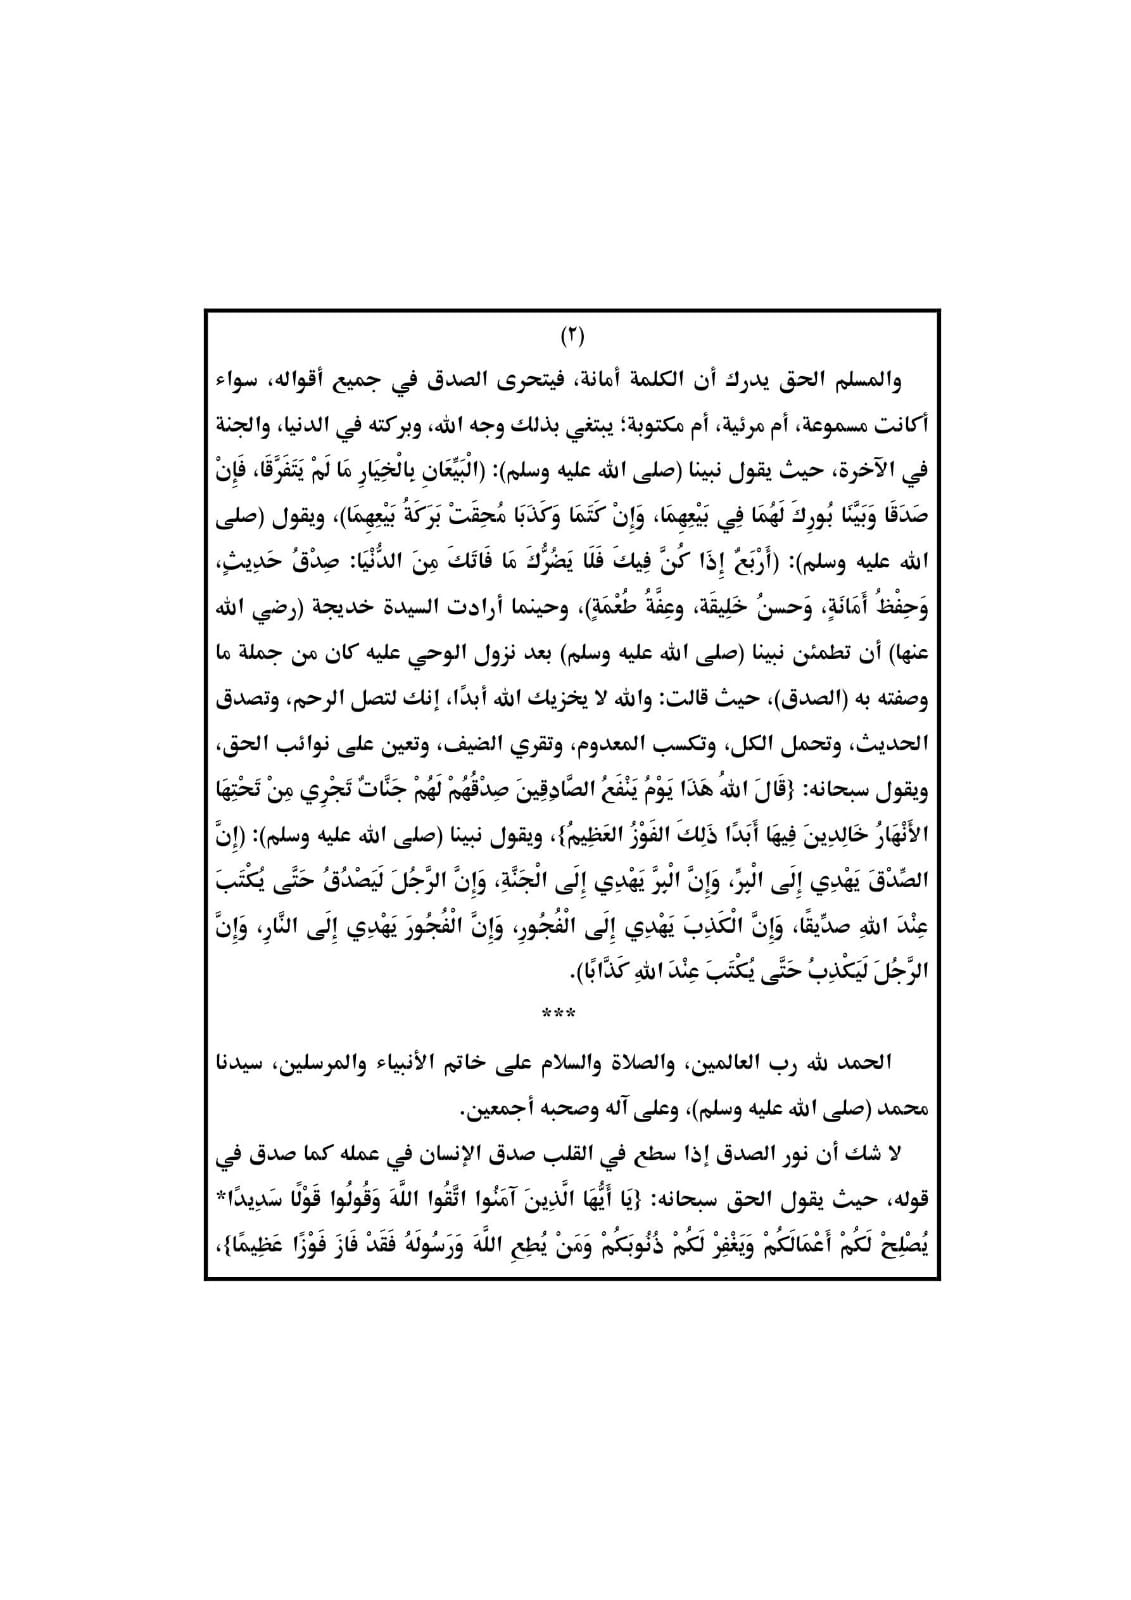 (٢)
والمسلم الحق يدرك أن الكلمة أمانة، فيتحرى الصدق في جميع أقواله، سواء
أكانت مسموعة، أم مرئية، أم مكتوبة؛ يبتغي بذلك وجه الله، وبركته في الدنيا، والجنة
في الآخرة، حيث يقول نبينا (صلى الله عليه وسلم): (الْبَيِّعَانِ بِالْخِيَارِ مَا لَمْ يَتَفَرَّقَا، فَإِنْ
صَدَقَا وَبَيَّنَا بُورِكَ لَهُمَا فِي بَيْعِهِمَا، وَإِنْ كَتَمَا وَكَذَبَا مُحِقَتْ بَرَكَةُ بَيْعِهِمَا)، ويقول (صلى
الله عليه وسلم): (أَرْبَعٌ إِذَا كُنَّ فِيكَ فَلَا يَضُرُّكَ مَا فَاتَكَ مِنَ الدُّنْيَا: صِدْقُ حَدِيثٍ،
وَحِفْظُ أَمَانَةٍ، وَحسنُ خَلِيقَة، وعِفَّةُ طُعْمَةٍ)، وحينما أرادت السيدة خديجة (رضي الله
عنها) أن تطمئن نبينا (صلى الله عليه وسلم) بعد نزول الوحي عليه كان من جملة ما
وصفته به (الصدق)، حيث قالت: والله لا يخزيك الله أبدًا، إنك لتصل الرحم، وتصدق
الحديث، وتحمل الكل، وتكسب المعدوم، وتقري الضيف، وتعين على نوائب الحق،
ويقول سبحانه: {قَالَ اللهُ هَذَا يَوْمُ يَنْفَعُ الصَّادِقِينَ صِدْقُهُمْ لَهُمْ جَنَّاتٌ تَجْرِي مِنْ تَحْتِهَا
الأَنْهَارُ خَالِدِينَ فِيهَا أَبَدًا ذَلِكَ الفَوْزُ العَظِيمُ}، ويقول نبينا (صلى الله عليه وسلم): (إِنَّ
الصِّدْقَ يَهْدِي إِلَى الْبِرِّ، وَإِنَّ الْبِرَّ يَهْدِي إِلَى الْجَنَّةِ، وَإِنَّ الرَّجُلَ لَيَصْدُقُ حَتَّى يُكْتَبَ
عِنْدَ اللهِ صدِّيقًا، وَإِنَّ الْكَذِبَ يَهْدِي إِلَى الْفُجُورِ، وَإِنَّ الْفُجُورَ يَهْدِي إِلَى النَّارِ، وَإِنَّ
الرَّجُلَ لَيَكْذِبُ حَتَّى يُكْتَبَ عِنْدَ اللهِ كَذَّابًا).
***
الحمد لله رب العالمين، والصلاة والسلام على خاتم الأنبياء والمرسلين، سيدنا
محمد (صلى الله عليه وسلم)، وعلى آله وصحبه أجمعين.
لا شك أن نور الصدق إذا سطع في القلب صدق الإنسان في عمله كما صدق في
قوله، حيث يقول الحق سبحانه: {يَا أَيُّهَا الَّذِينَ آمَنُوا اتَّقُوا اللَّهَ وَقُولُوا قَوْلًا سَدِيدًا*
يُصْلِحْ لَكُمْ أَعْمَالَكُمْ وَيَغْفِرْ لَكُمْ ذُنُوبَكُمْ وَمَنْ يُطِعِ اللَّهَ وَرَسُولَهُ فَقَدْ فَازَ فَوْزًا عَظِيمًا}،